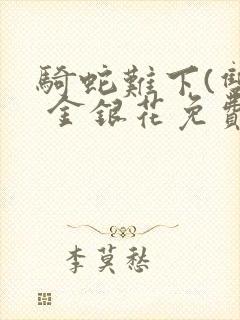 騎蛇難下(雙
金銀花免費
李莫愁